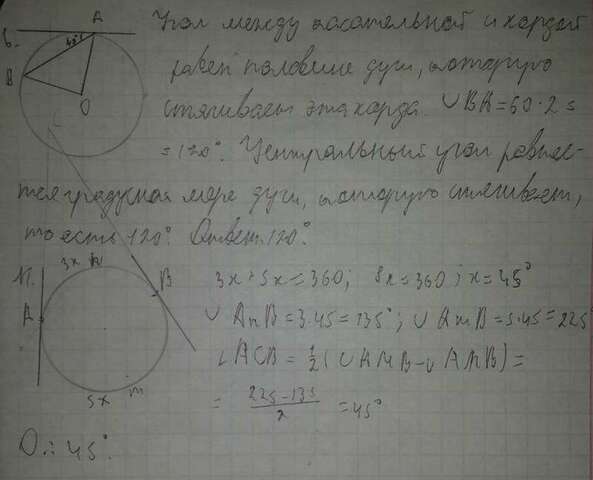 6.
A
B
O
Угол между касательной и хордой
равен половине дуги, которую
стягивает эта хорда. ∪BA=60·2=
=120°. Центральный угол равняе-
тся градусная мере дуги, которую стягивает,
то есть 120°. Ответ. 120°
3x n
B
A
5x m
3x+5x=360; 8x=360; x=45°
∪AnB=3·45=135°; ∪AmB=5·45=225°
∠ACB=1/2(∪AmB-∪AnB)=
= 225-135/2 =45°
O.: 45°.